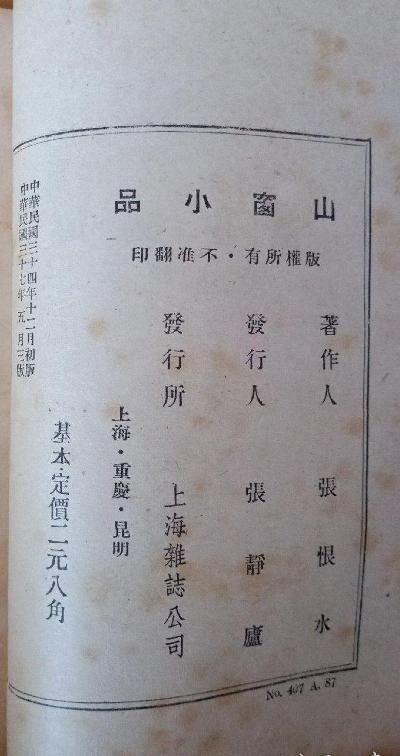 山窗小品
版權所有・不准翻印
著作人 張恨水
發行人 張靜廬
發行所 上海雜誌公司
上海・重慶・昆明
基本定價二元八角
中華民國三十四年十二月初版
中華民國三十七年五月三版
No. 407 A. 87